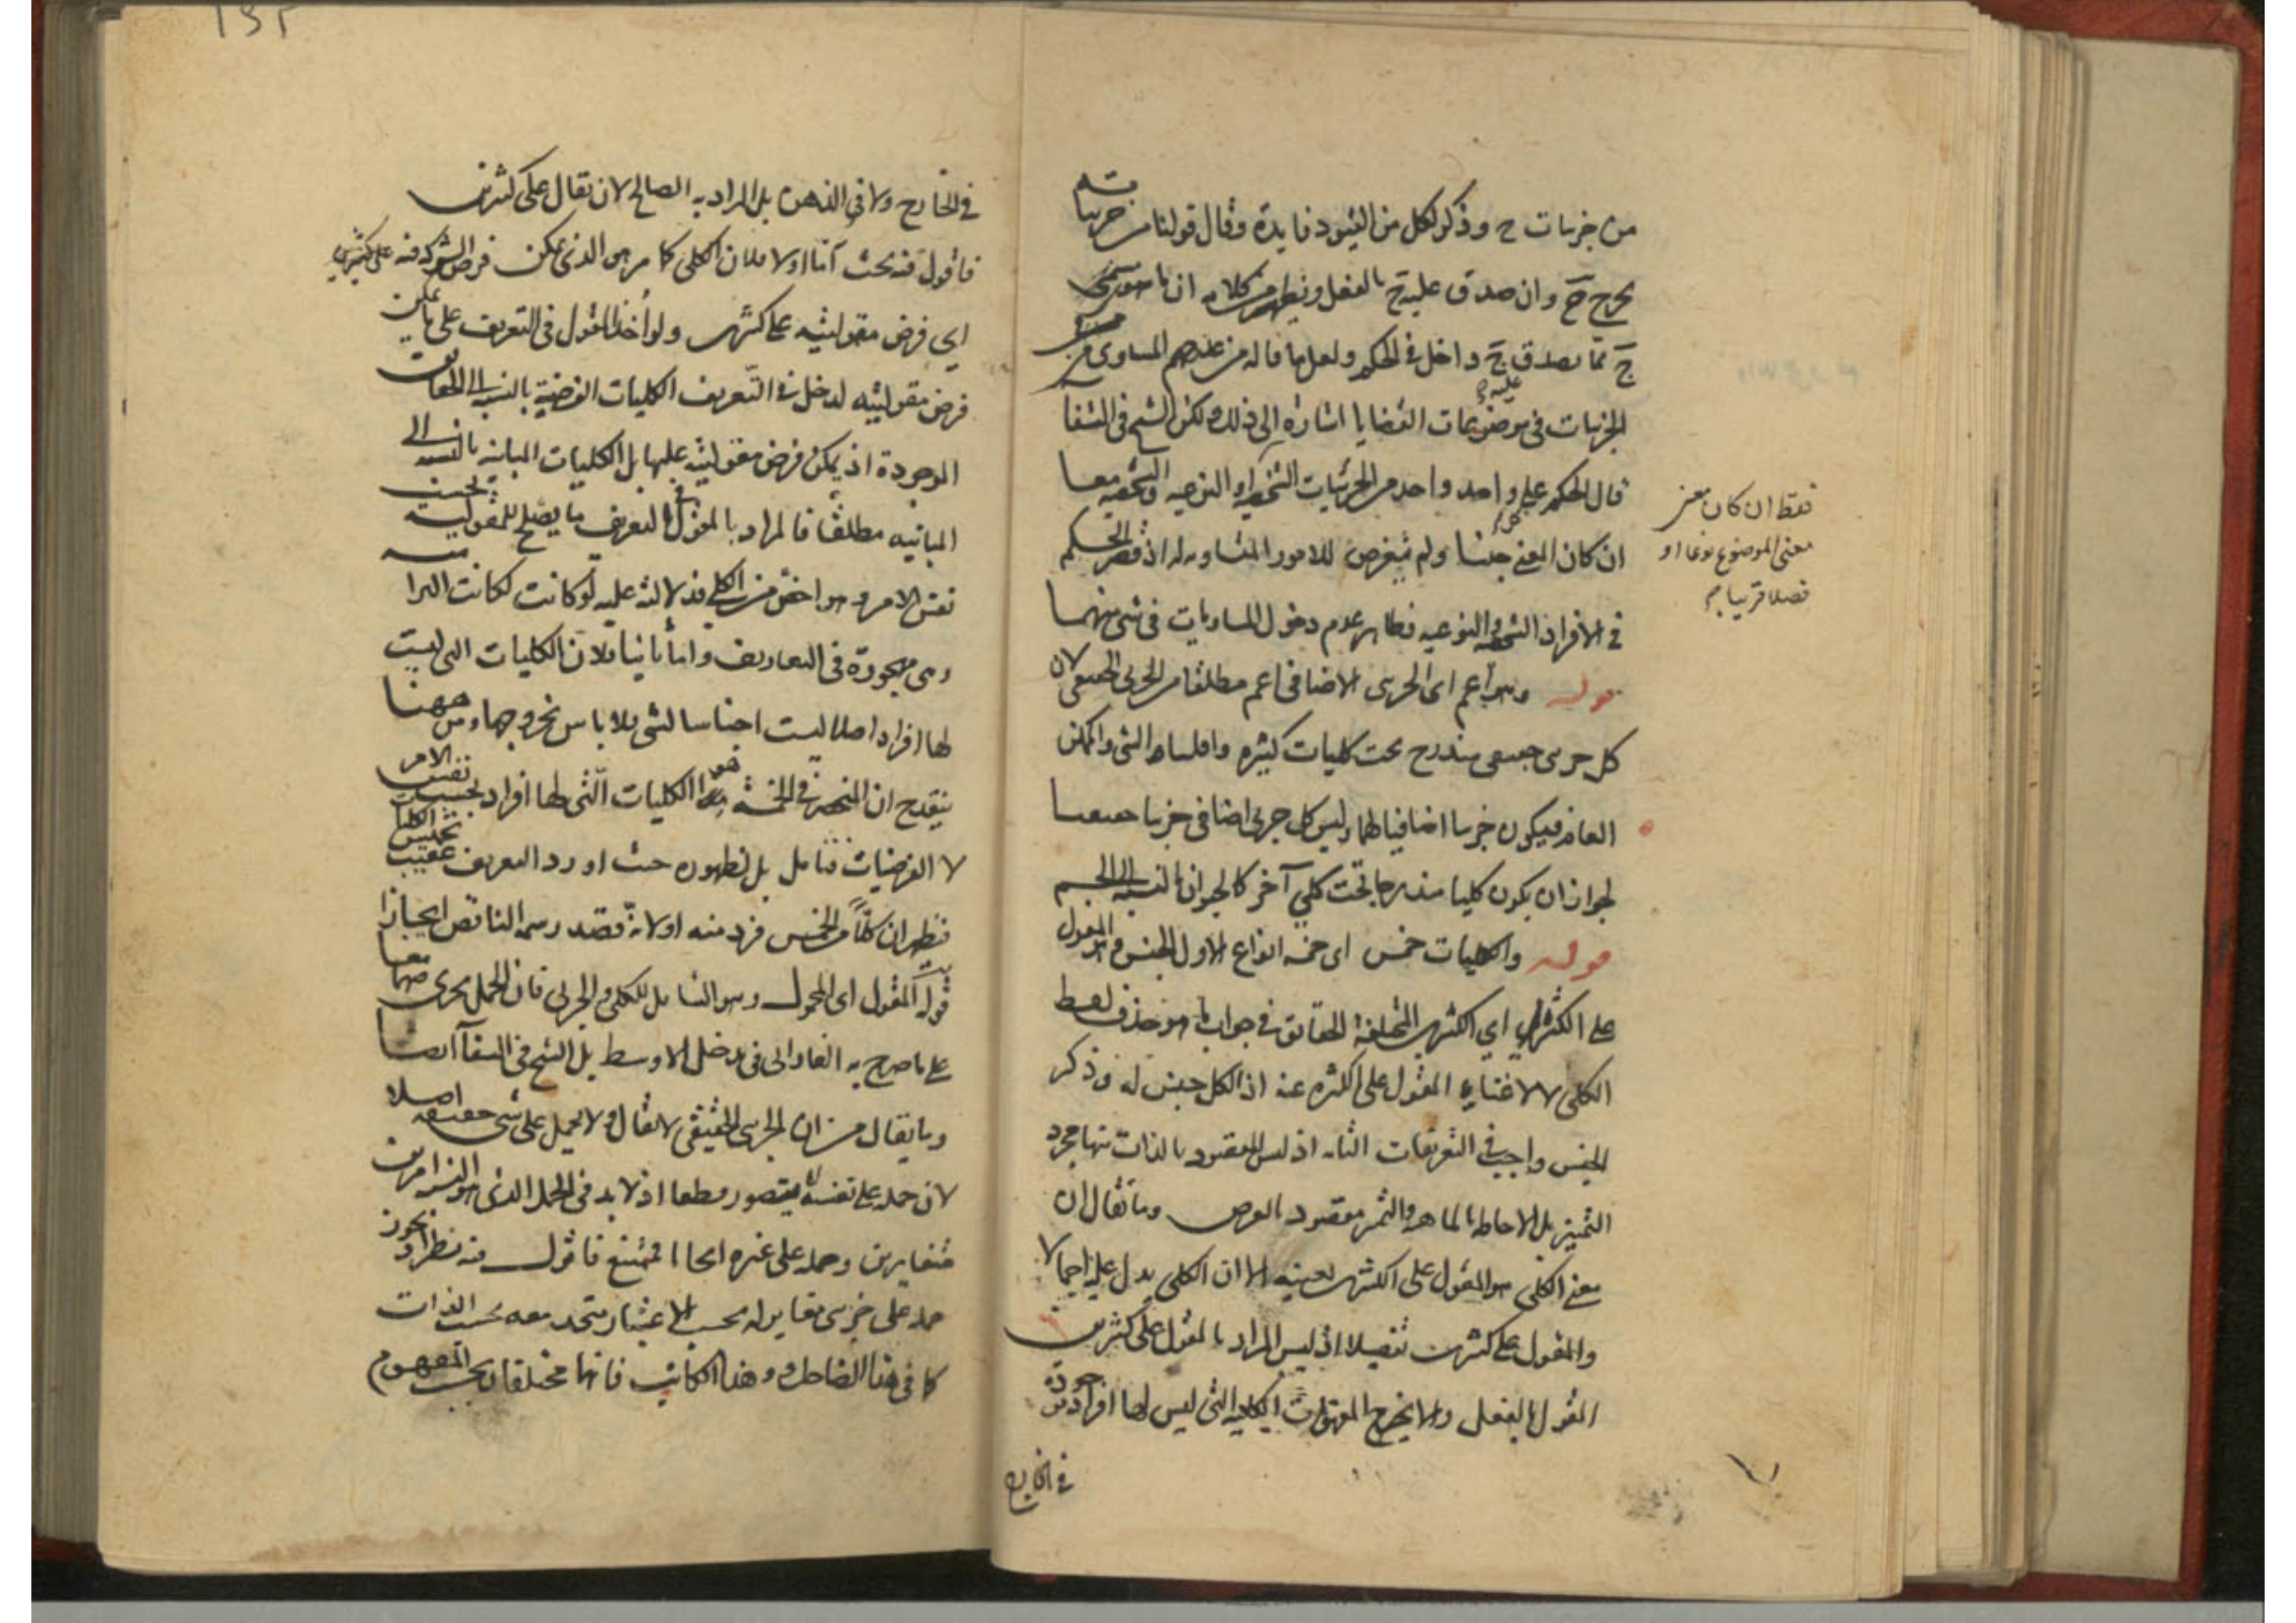 من جزئيات ج وذكر لكل من القيود فايدة وقال قولنا من جزئياته
يخرج ج وان صدق عليه ج بالفعل ويظهر من كلامه ان ما هو مسمى
ج مما يصدق عليه ج داخل في الحكم ولعل ما قاله من عدهم المساوى من
الجزئيات في موضوعات القضايا اشارة الى ذلك ولكن الشيخ في الشفا
قال الحكم على واحد واحد من الجزئيات الشخصية او النوعية والشخصية معا
ان كان المعنى جنسا ولم يتعرض للامور المتساويه له اذ قصر الحكم
في الافراد الشخصية والنوعيه فظاهر عدم دخول المساويات في شى منهما
قوله وهو اعم اى الجزئى الاضافى اعم مطلقا من الجزئى الحقيقى لان
كل جزئى حقيقى مندرج تحت كليات كثيره واقلها الشى والممكن
العام فيكون جزئيا اضافيا لهما وليس كل جزئى اضافى جزئيا حقيقيا
لجواز ان يكون كليا مندرجا تحت كلي آخر كالحيوان بالنسبة الى الجسم
قوله والكليات خمس اى خمسه انواع الاول الجنس وهو المقول
على الكثرة اي الكثيرين المختلفة الحقايق في جواب ما هو حذف لفظ
الكلى لاغناء المقول على الكثره عنه اذ الكل جنس له وذكر
الجنس واجب في التعريفات التامه اذ ليس المقصود بالذات منها مجرد
التميز بل الاحاطه بالماهيه والتميز مقصود بالعرض وما يقال ان
معنى الكلى هو المقول على الكثيرين بعينه الا ان الكلى يدل عليه اجمالا
والمقول على كثيرين تفصيلا اذ ليس المراد بالمقول على كثيرين
المقول بالفعل والا يخرج المفهومات الكلية التى ليس لها افراد موجودة
في الخارج
فقط ان كان معنى
معنى الموضوع نوعا او
فصلا قريبا
١٥٢
في الخارج ولا في الذهن بل المراد به الصالح لان يقال على كثيرين
فاقول فيه بحث اما اولا فلان الكلى كما مر هو الذى يمكن فرض اشتراكه فيه على كثيرين
اي فرض مقوليته على كثيرين ولو اخذ المقول في التعريف على ما يمكن
فرض مقوليته لدخل في التعريف الكليات الفرضية بالنسبة الى الحقايق
الموجودة اذ يمكن فرض مقوليته عليها بل الكليات المباينه بالنسبه الى
المباينه مطلقا فالمراد بالمقول في التعريف ما يصلح للمقولية بحسب
نفس الامر وهو اخص من الكلي فدلالته عليه لو كانت لكانت التزاميه
وهى مهجورة في التعاريف واما ثانيا فلان الكليات التى ليست
لها افراد اصلا ليست اجناسا لشى فلا باس بخروجها ومن ههنا
ينقدح ان المنحصر في الخمسة هو الكليات التى لها افراد بحسب نفس الامر
لا الفرضيات فتامل بل لظهوره حيث اورد التعريف عقيب تخميس الكليات
فيظهر ان كلا من الخمس فرد منه اولانه قصد رسمه الناقص ايجازا
قوله المقول اى المحمول وهو الشامل للكلى والجزئى فان الحمل يجرى فيهما معا
على ما صرح به الفارابى في مدخل الاوسط بل الشيخ في الشفا ايضا
وما يقال من ان الجزئى الحقيقى لا يقال ولا يحمل على شى حقيقه اصلا
لان حمله على نفسه لا يتصور قطعا اذ لابد في الحمل الذى هو النسبه من امرين
متغايرين وحمله على غيره ايجابا ممتنع فاقول فيه نظر اذ يجوز
حمله على جزئى مغاير له بحسب الاعتبار متحد معه بحسب الذات
كما في هذا الضاحك وهذا الكاتب فانهما مختلفان بحسب المفهوم